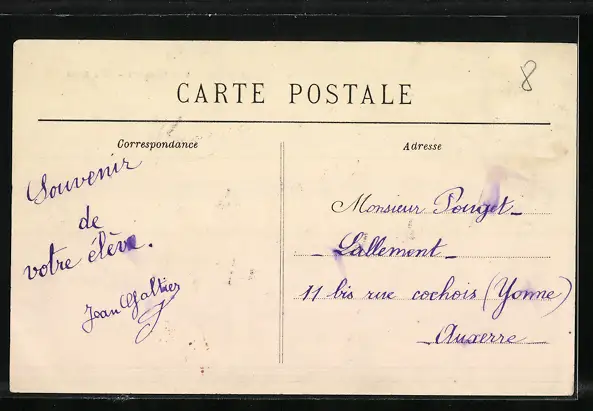 8
CARTE POSTALE
Correspondance
Adresse
Souvenir
de
votre élève.
Jean Galtier
Monsieur Pouget-
- Lallement -
11 bis rue cochois (Yonne)
- Auxerre